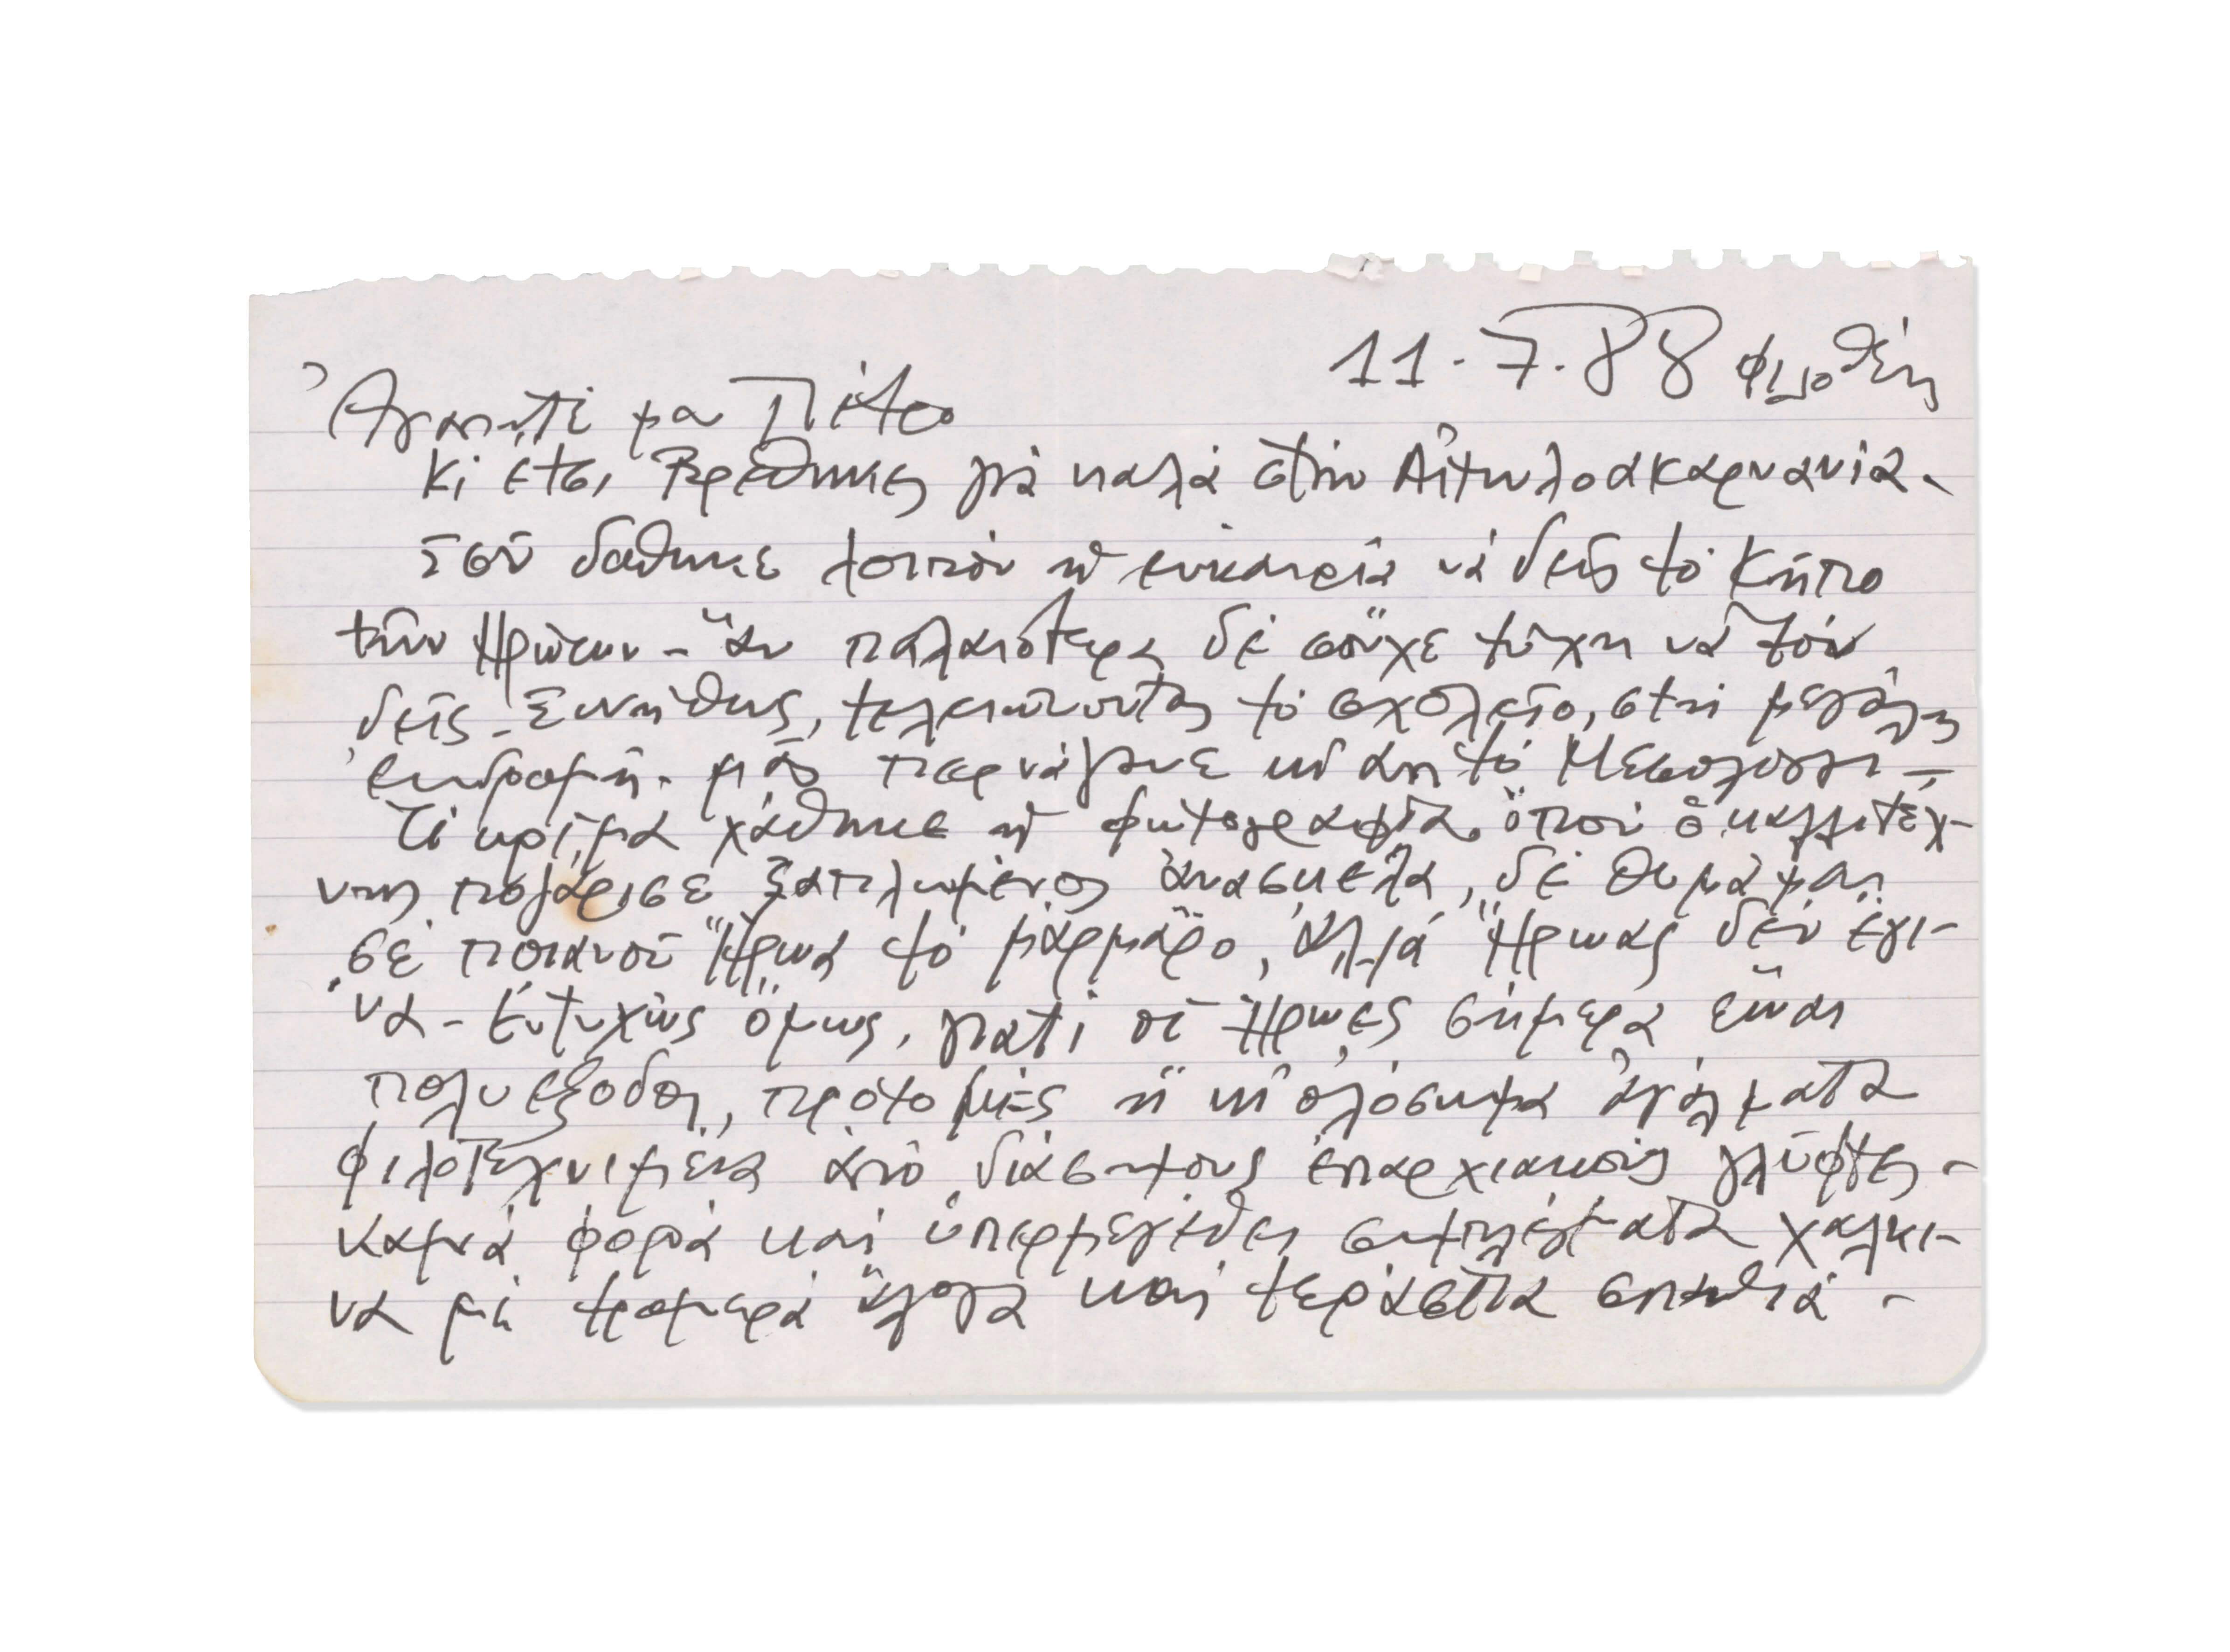 11.7.88 Φιλοθέη
Ἀγαπητέ μου Πέτρο
Κι ἔτσι βρέθηκες γιά καλά στήν Αἰτωλοακαρνανία.
Σοῦ δόθηκε λοιπόν ἡ εὐκαιρία νά δεῖς τό Κῆπο
τῶν Ἡρώων - ἄν παλαιότερα δέ σοὖχε τύχη νά τόν
δεῖς. Συνήθως, τελειώνοντας τό σχολεῖο, στή μεγάλη
ἐκδρομή. μᾶς περνάγανε κι ἀπ τό Μεσολόγγι -
Τί κρίμα χάθηκε ἡ φωτογραφία ὅπου ὁ καλλιτέχ-
νης ποζάρισε ξαπλωμένος ἀνάσκελα, δέ θυμᾶμαι
σέ ποιανοῦ Ἥρωα τό μάρμαρο, ἀλλά Ἥρωας δέν ἔγι-
να - Εὐτυχῶς ὅμως, γιατί οἱ Ἥρωες σήμερα εἶναι
πολυέξοδοι, προτομές ἤ κι ὁλόσωμα ἀγάλματα
φιλοτεχνημένα ἀπό διάσημους ἐπαρχιακούς γλύφτες -
Καμιά φορά καί ὑπερμεγέθει συμπλέγματα χάλκι-
να μέ τρομερά ἄλογα καί τεράστια σπαθιά -